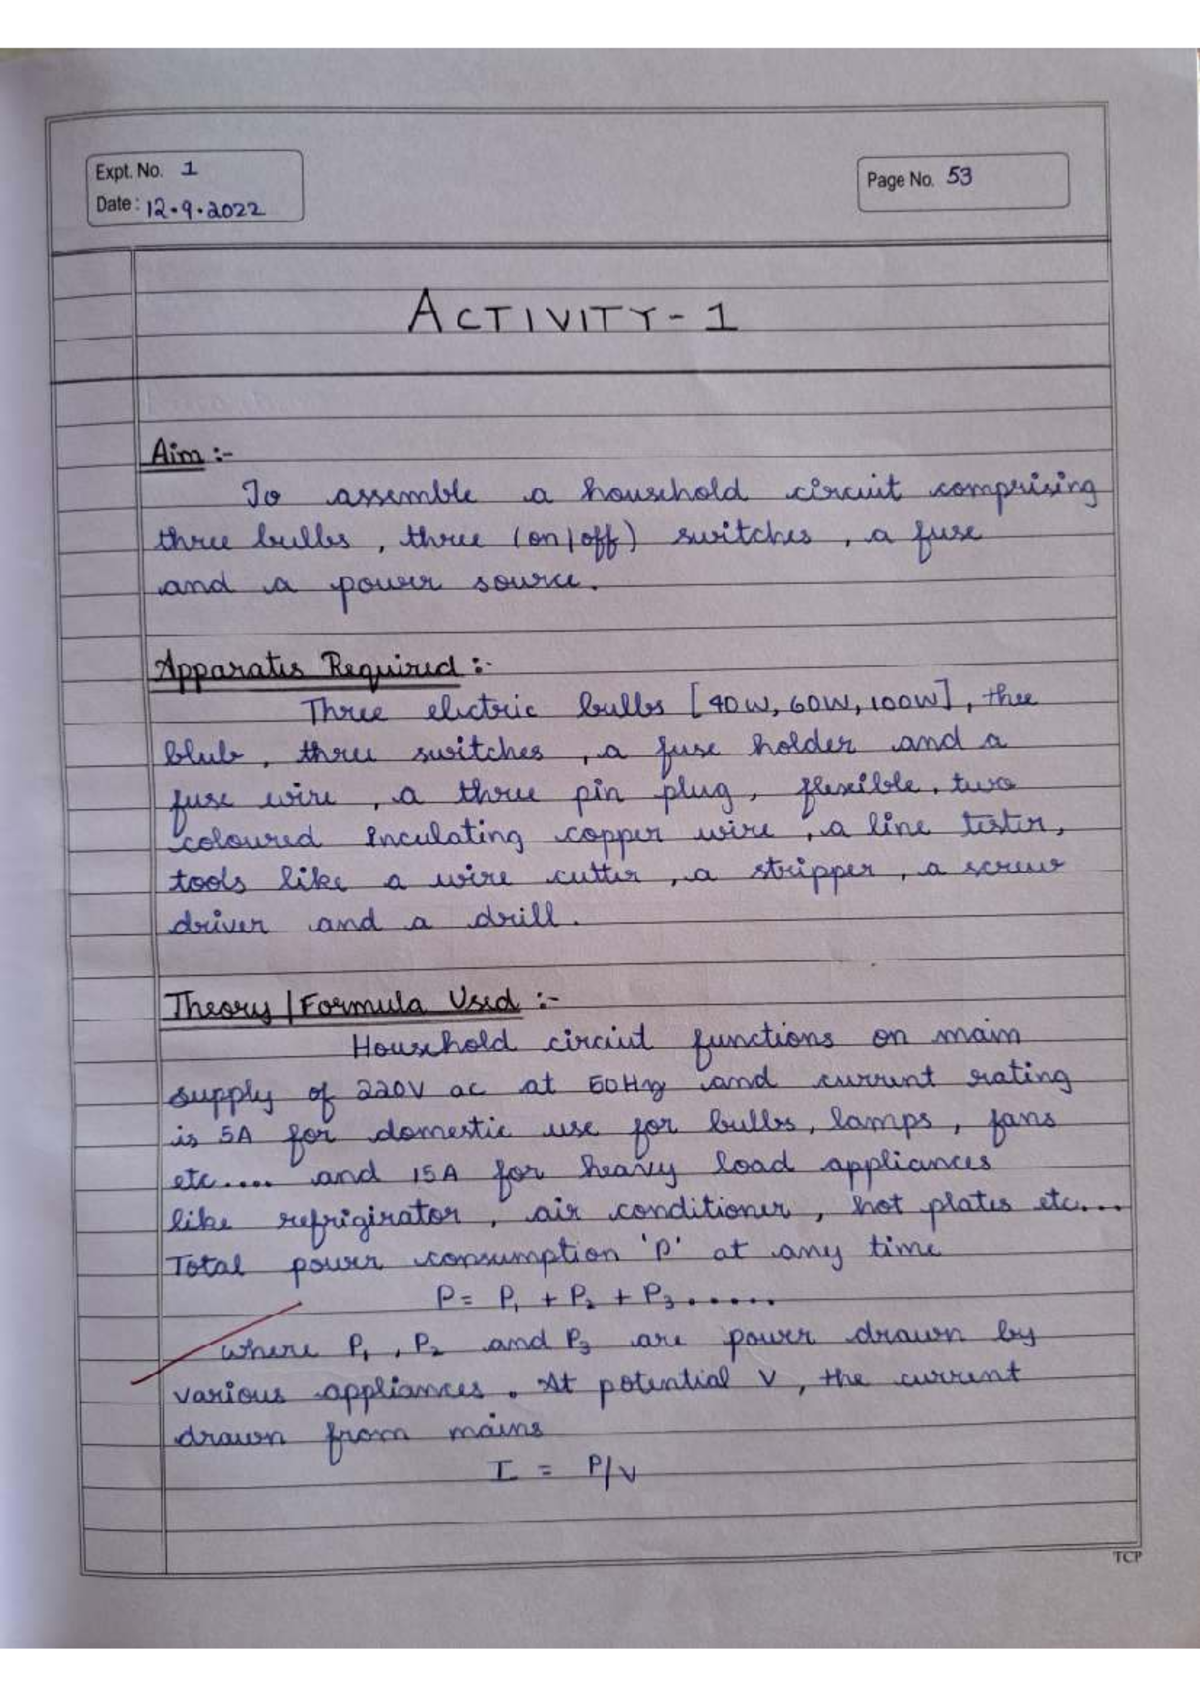 Expt. No. 1
Date : 12.9.2022
Page No. 53
ACTIVITY - 1
Aim :-
To assemble a household circuit comprising
three bulbs , three (on/off) switches , a fuse
and a power source.
Apparatus Required :-
Three electric bulbs [40W, 60W, 100W] , thee
blub , three switches , a fuse holder and a
fuse wire , a three pin plug , flexible , two
coloured Inculating copper wire , a line tester,
tools like a wire cutter , a stripper , a screw
driver and a drill .
Theory / Formula Used :-
Household circiut functions on main
supply of 220V ac at 50Hz and current rating
is 5A for domestic use for bulbs , lamps , fans
etc.... and 15A for heavy load appliances
like refrigirator , air conditioner , hot plates etc...
Total power consumption 'P' at any time
P = P₁ + P₂ + P₃ ......
where P₁ , P₂ and P₃ are power drawn by
various appliances . At potential V , the current
drawn from mains
I = P/V
TCP